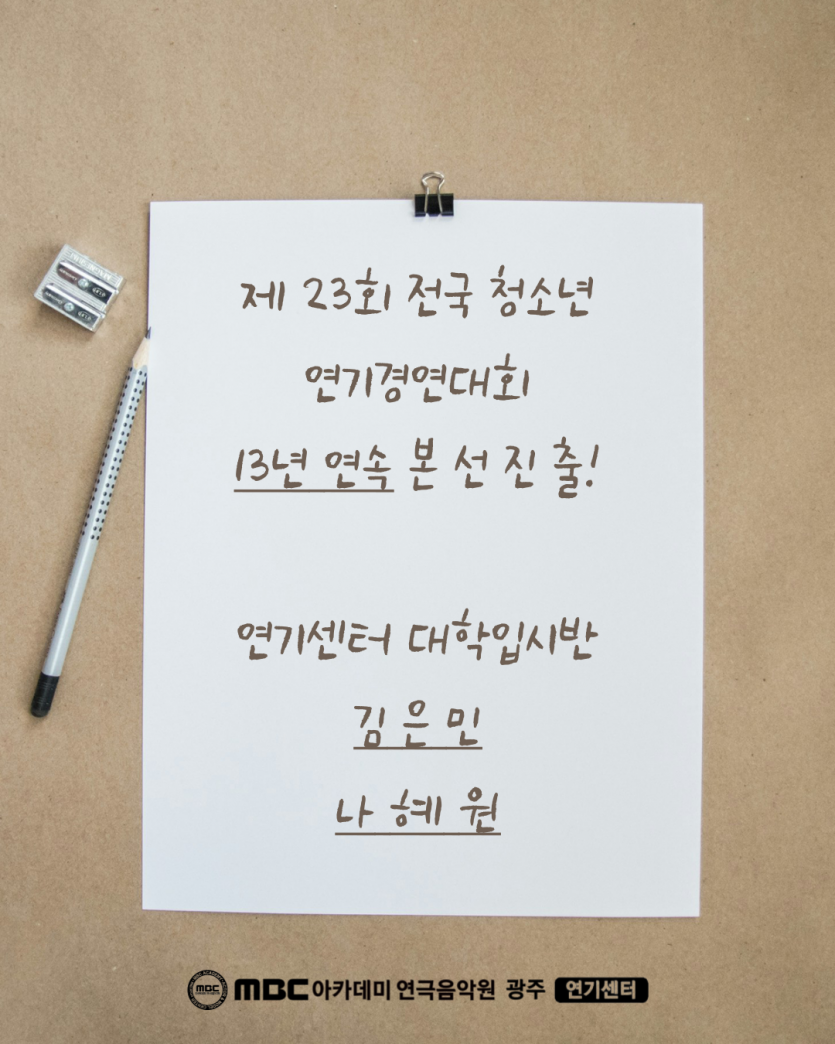 제 23회 전국 청소년
연기경연대회
13년 연속 본 선 진 출!
연기센터 대학입시반
김 은 민
나 혜 원
MBC MBC아카데미 연극음악원 광주 연기센터